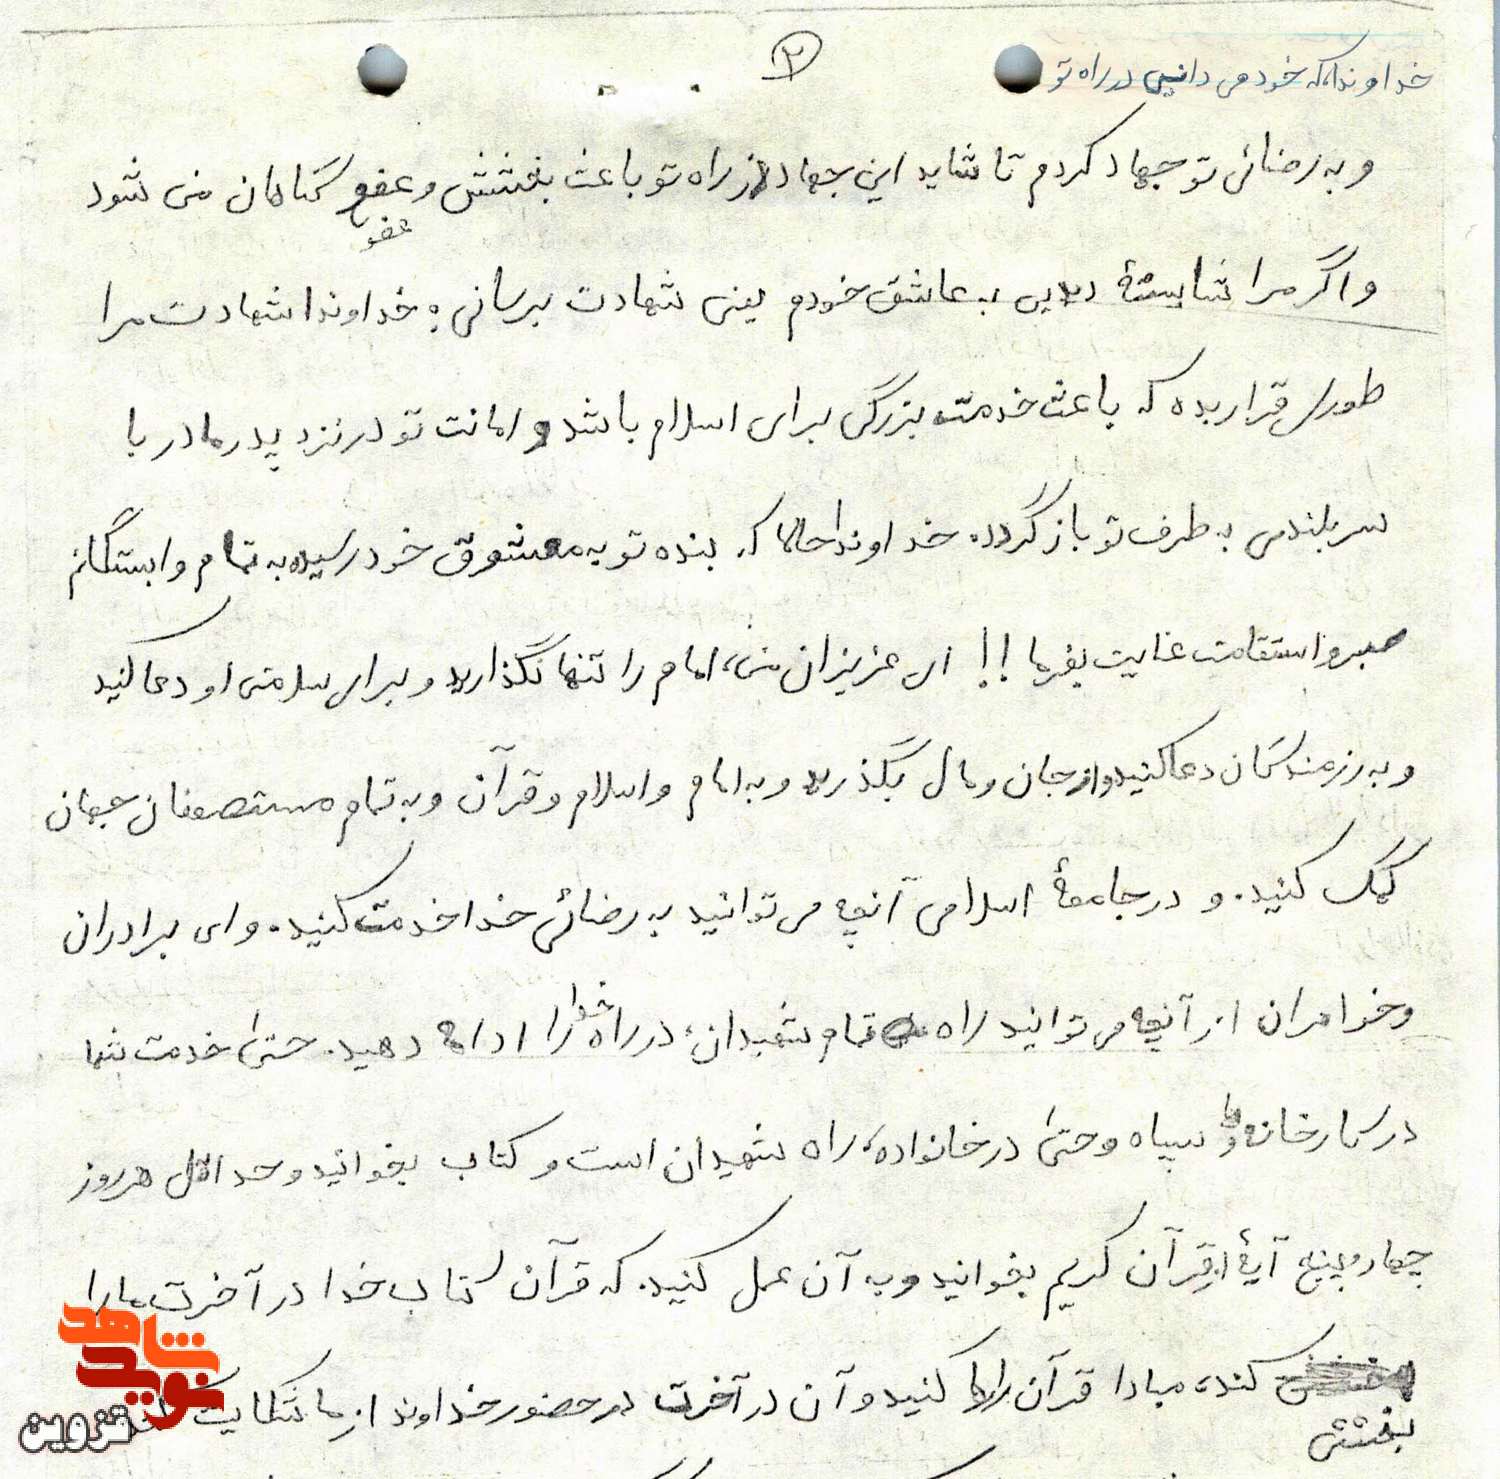 ۲
خداوندا، که خود می دانی در راه تو
و به رضائی تو جهاد کردم تا شاید این جهاد در راه تو باعث بخشش و عفو گناهان من شود
عفو
و اگر مرا شایستهٔ دیدی به عاشق خودم یعنی شهادت برسانی، خداوندا شهادت مرا
طوری قرار بده که باعث خدمت بزرگی برای اسلام باشد و امانت تو در نزد پدر مادر با
سربلندی به طرف تو باز گردد. خداوندا حالا که بنده تو به معشوق خود رسیده به تمام وابستگانم
صبر و استقامت عنایت بفرما !! ای عزیزان من، امام را تنها نگذارید و برای سلامتی او دعا کنید
و به رزمندگان دعا کنید و از جان و مال بگذرید و به امام و اسلام و قرآن و به تمام مستضعفان جهان
کمک کنید. و در جامعهٔ اسلامی آنچه می توانید به رضائی خدا خدمت کنید. و ای برادران
و خواهران از آنچه می توانید راه تمام شهیدان، در راه خدا را ادامه دهید. حتی خدمت شما
در کارخانه و یا سپاه و حتی در خانواده، راه شهیدان است و کتاب بخوانید و حداقل هر روز
چهار و پنج آیهٔ از قرآن کریم بخوانید و به آن عمل کنید. که قرآن کتاب خدا در آخرت ما را
کند، مبادا قرآن را رها کنید و آن در آخرت در حضور خداوند از ما شکایت کند
بخشش
شاهد
نوید
قزوین